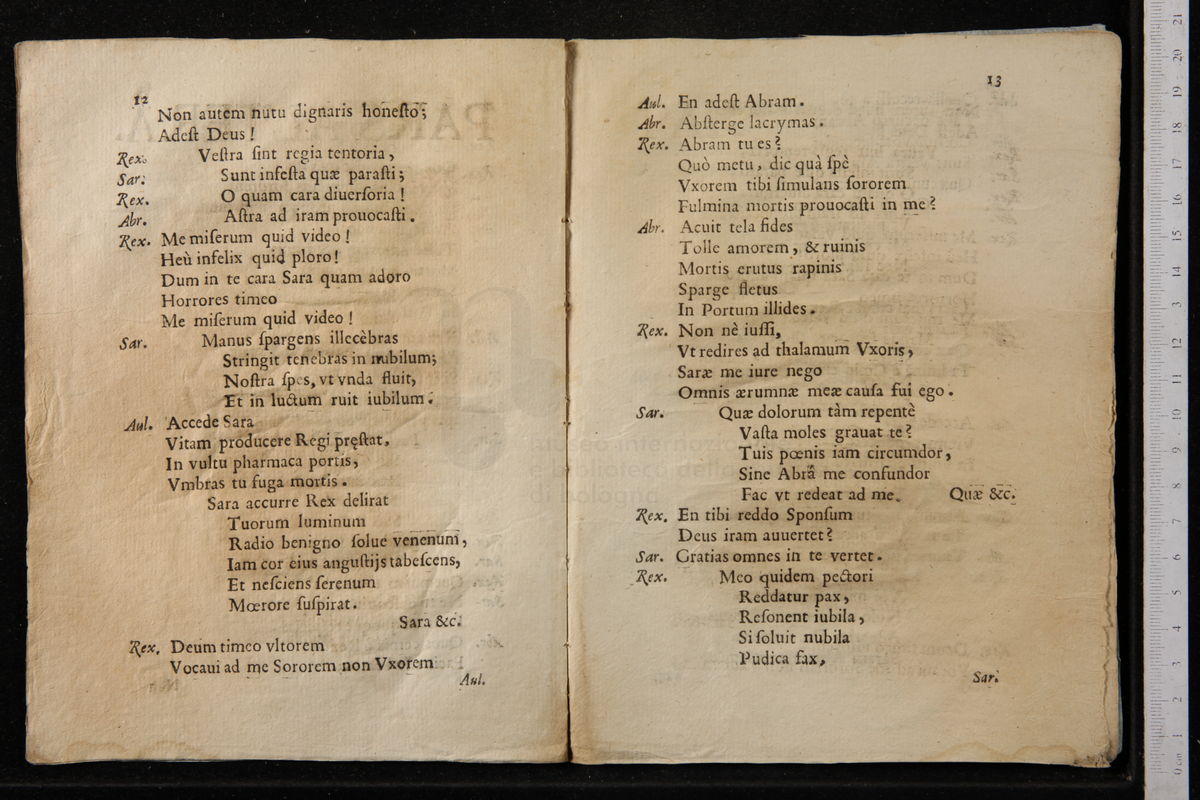 12
Non autem nutu dignaris honeſto;
Adeſt Deus!
Rex. Veſtra ſint regia tentoria,
Sar. Sunt infeſta quæ paraſti;
Rex. O quam cara diuerſoria!
Abr. Aſtra ad iram prouocaſti.
Rex. Me miſerum quid video!
Heù infelix quid ploro!
Dum in te cara Sara quam adoro
Horrores timeo
Me miſerum quid video!
Sar. Manus ſpargens illecèbras
Stringit tenebras in nubilum;
Noſtra ſpes, vt vnda fluit,
Et in luctum ruit iubilum.
Aul. Accede Sara
Vitam producere Regi pręſtat,
In vultu pharmaca portis,
Vmbras tu fuga mortis.
Sara accurre Rex delirat
Tuorum luminum
Radio benigno ſolue venenum,
Iam cor eius anguſtijs tabeſcens,
Et neſciens ſerenum
Mœrore ſuſpirat.
Sara &c.
Rex. Deum timeo vltorem
Vocaui ad me Sororem non Vxorem
Aul.
13
Aul. En adeſt Abram.
Abr. Abſterge lacrymas.
Rex. Abram tu es?
Quò metu, dic quà ſpè
Vxorem tibi ſimulans ſororem
Fulmina mortis prouocaſti in me?
Abr. Acuit tela fides
Tolle amorem, & ruinis
Mortis erutus rapinis
Sparge fletus
In Portum illides.
Rex. Non nè iuſſi,
Vt redires ad thalamum Vxoris,
Saræ me iure nego
Omnis ærumnæ meæ cauſa fui ego.
Sar. Quæ dolorum tàm repentè
Vaſta moles grauat te?
Tuis pœnis iam circumdor,
Sine Abrâ me confundor
Fac vt redeat ad me. Quæ &c.
Rex. En tibi reddo Sponſum
Deus iram auuertet?
Sar. Gratias omnes in te vertet.
Rex. Meo quidem pectori
Reddatur pax,
Reſonent iubila,
Si ſoluit nubila
Pudica fax,
Sar.